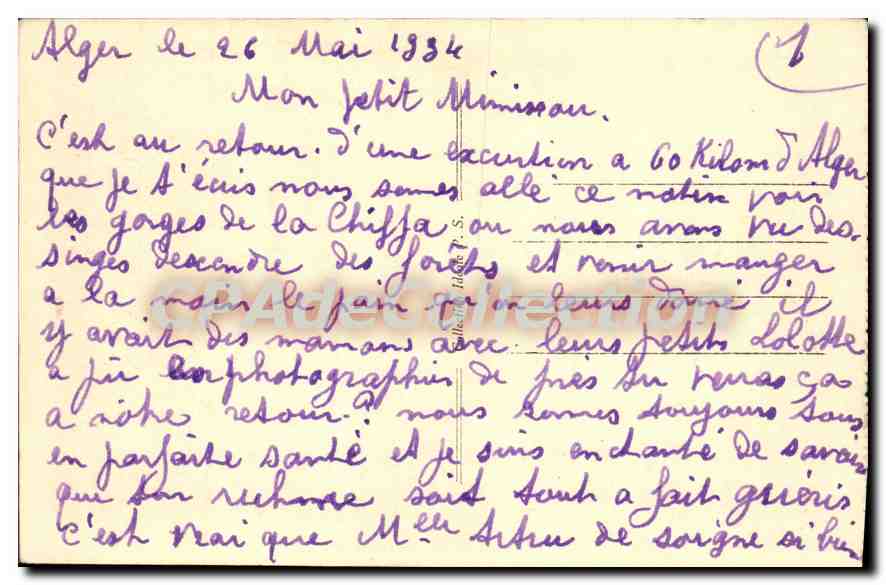 Alger le 26 Mai 1934
1
Mon petit Mimissou.
C'est au retour. d'une excurtion a 60 Kilom d'Alger
que je t'écris nous somes allé ce matin voir
les gorges de la Chiffa ou nous avons vu des
singes descendre des forêts et venir manger
a la main le pain qu'on leurs donné il
y avait des mamans avec leurs petits Lolotte
a pû les photographier de près tu verras ça
a notre retour. nous somes toujours tous
en parfaite santé et je suis enchanté de savoir
que ton ruhme soit tout a fait guéris
c'est vrai que Melle te soigne si bien
Collection Idéale P. S.
CPAdeCollection